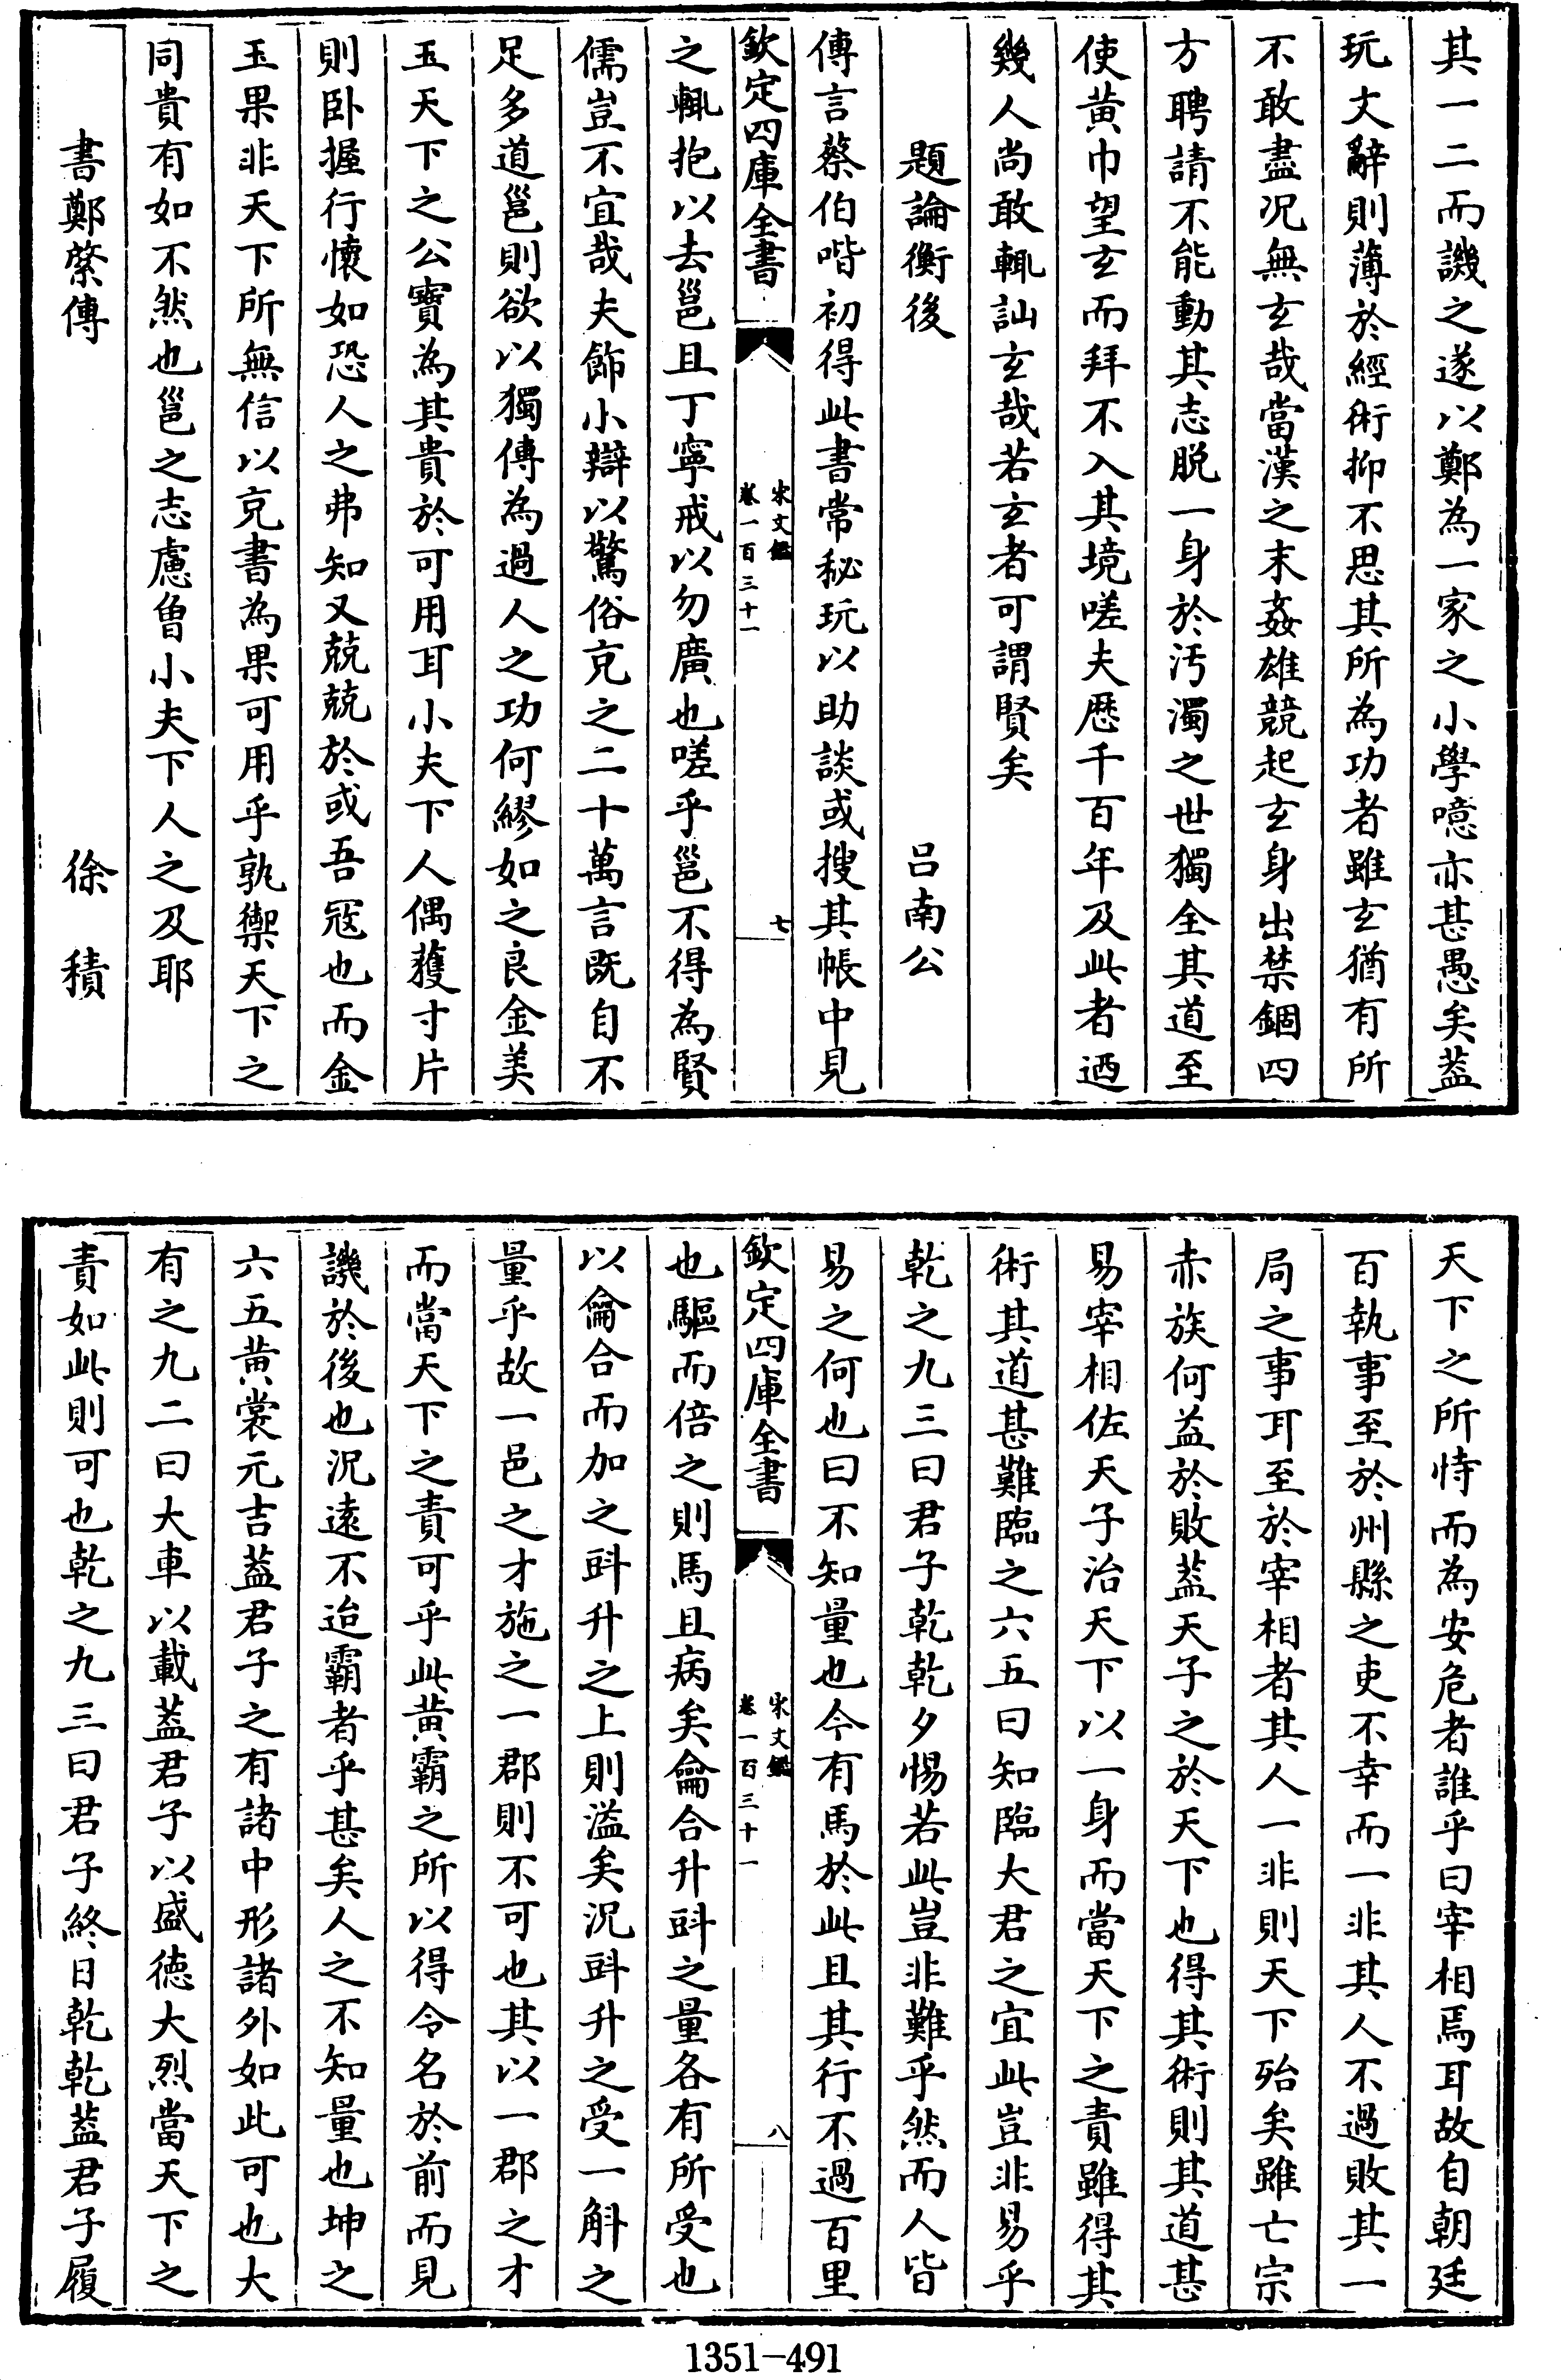 其一二而譏之遂以鄭為一家之小學噫亦甚愚矣葢
玩文辭則薄於經術抑不思其所為功者雖玄猶有所
不敢盡况無玄哉當漢之末姦雄競起玄身出禁錮四
方聘請不能動其志脱一身於汚濁之世獨全其道至
使黄巾望玄而拜不入其境嗟夫歴千百年及此者迺
幾人尚敢輒訕玄哉若玄者可謂賢矣
題論衡後　吕南公
傳言蔡伯喈初得此書常秘玩以助談或搜其帳中見
欽定四庫全書
宋文鑑
卷一百三十一
七
之輒抱以去邕且丁寧戒以勿廣也嗟乎邕不得為賢
儒豈不宜哉夫飾小辯以驚俗充之二十萬言既自不
足多道邕則欲以獨傳為過人之功何繆如之良金美
玉天下之公寶為其貴於可用耳小夫下人偶獲寸片
則卧握行懷如恐人之弗知又兢兢於或吾冦也而金
玉果非天下所無信以充書為果可用乎孰禦天下之
同貴有如不然也邕之志慮曾小夫下人之及耶
書鄭綮傳　徐積
天下之所恃而為安危者誰乎曰宰相焉耳故自朝廷
百執事至於州縣之吏不幸而一非其人不過敗其一
局之事耳至於宰相者其人一非則天下殆矣雖亡宗
赤族何益於敗葢天子之於天下也得其術則其道甚
易宰相佐天子治天下以一身而當天下之責雖得其
術其道甚難臨之六五曰知臨大君之宜此豈非易乎
乾之九三曰君子乾乾夕惕若此豈非難乎然而人皆
易之何也曰不知量也今有馬於此且其行不過百里
欽定四庫全書
宋文鑑
卷一百三十一
八
也驅而倍之則馬且病矣龠合升㪷之量各有所受也
以龠合而加之㪷升之上則溢矣況㪷升之受一斛之
量乎故一邑之才施之一郡則不可也其以一郡之才
而當天下之責可乎此黄霸之所以得令名於前而見
譏於後也況遠不迨霸者乎甚矣人之不知量也坤之
六五黄裳元吉葢君子之有諸中形諸外如此可也大
有之九二曰大車以載葢君子以盛徳大烈當天下之
責如此則可也乾之九三曰君子終日乾乾葢君子履
1351-491